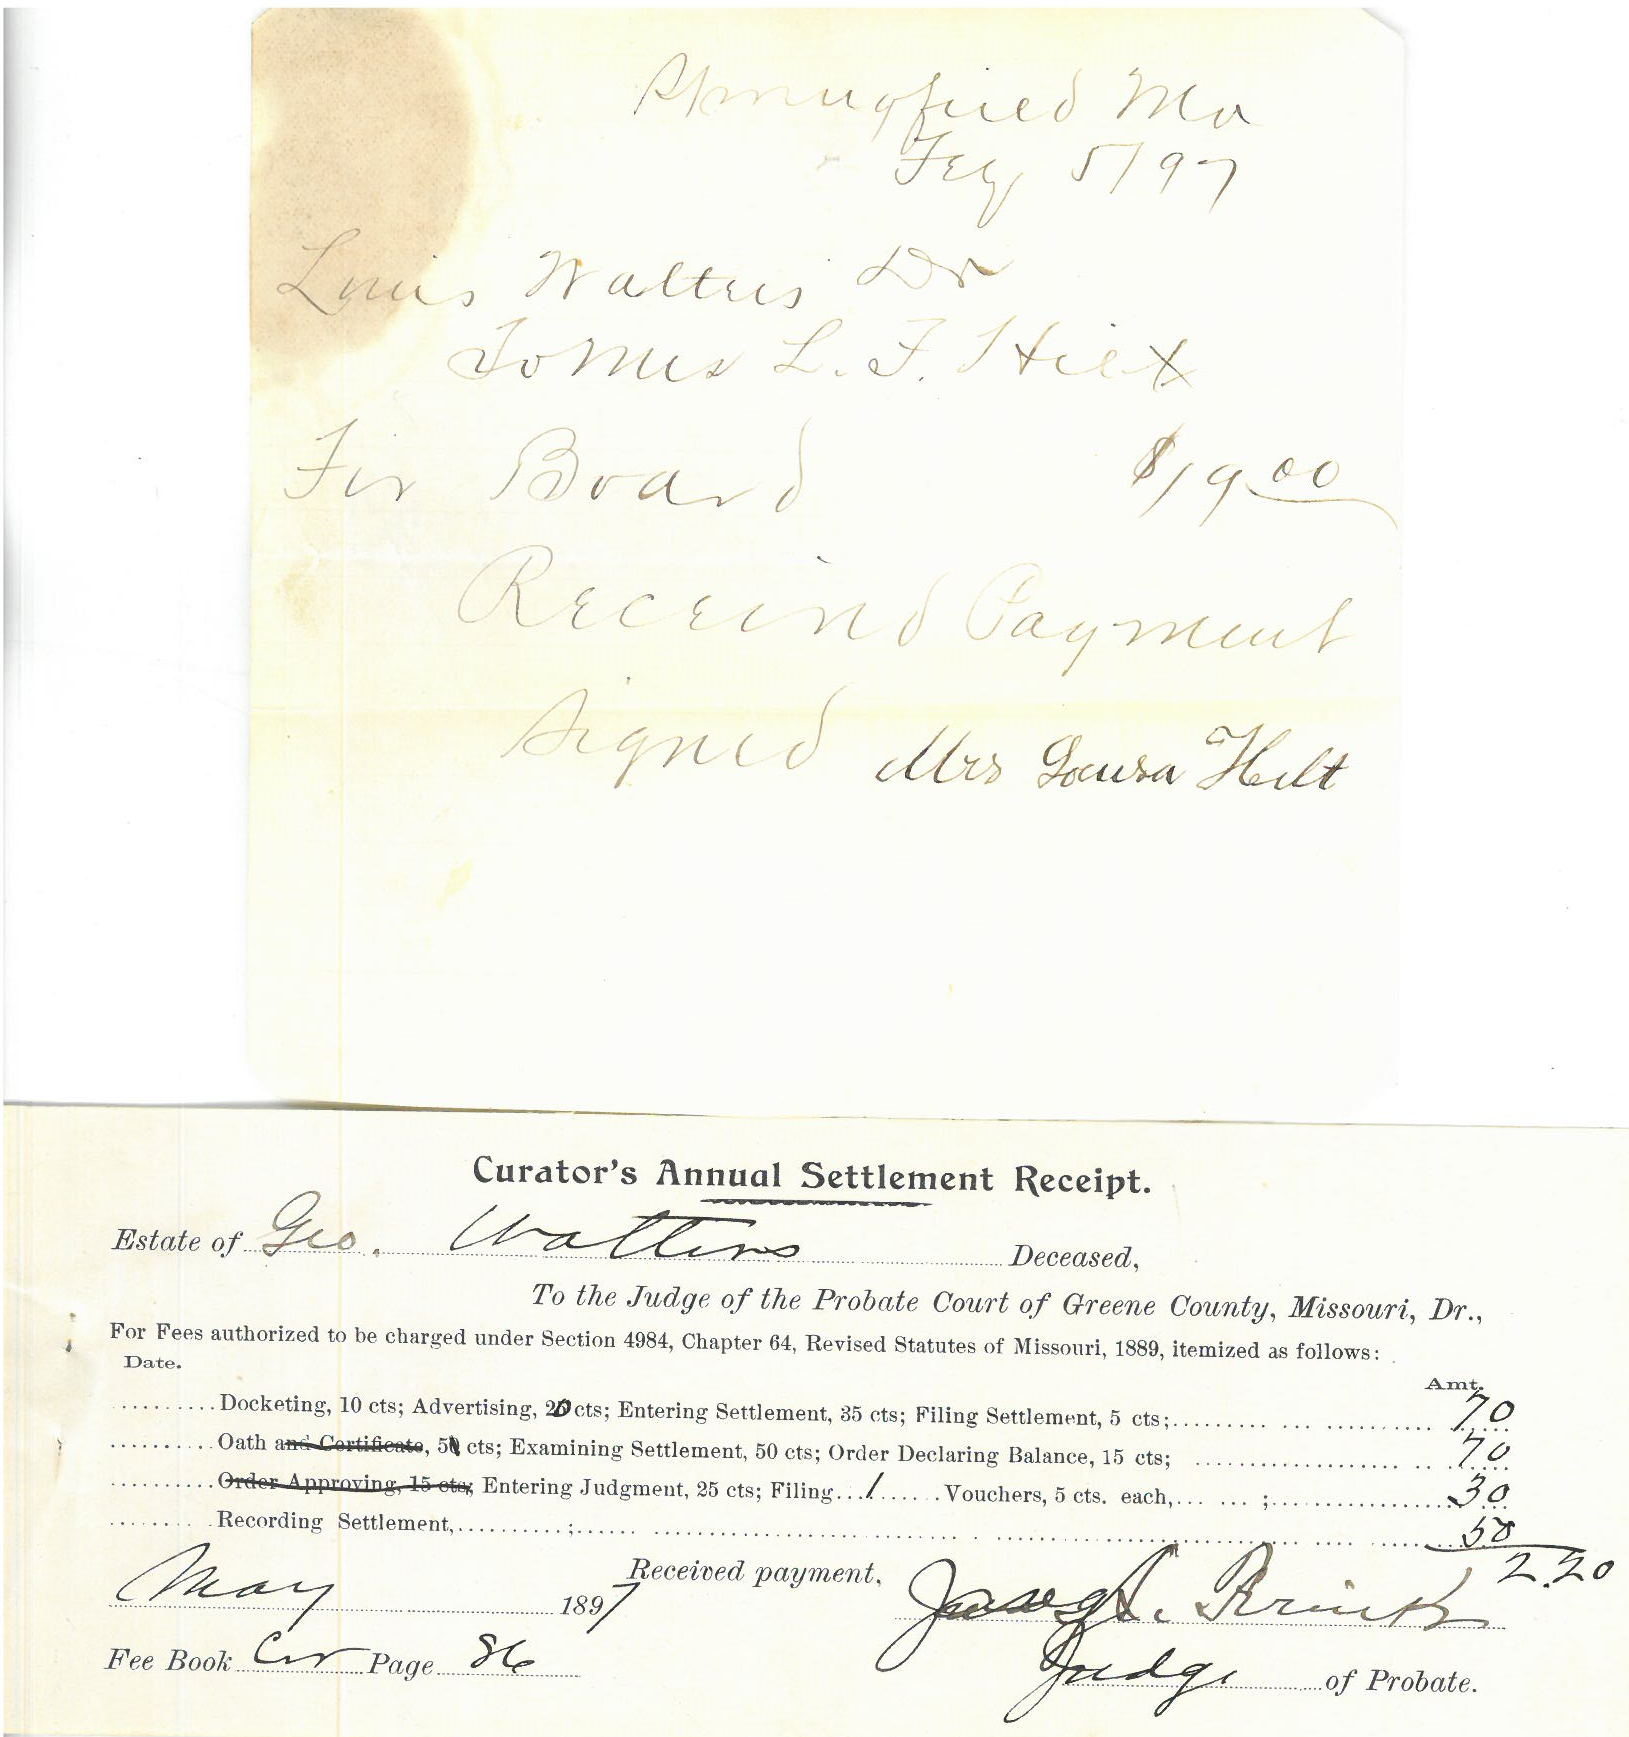 Springfield Mo
Feby 5/97
Louis Walters Dr
To Mrs L. F. Hilt
For Board $19.00
Received Payment
Signed Mrs Louisa Hilt
Curator's Annual Settlement Receipt.
Estate of Geo. Walters Deceased,
To the Judge of the Probate Court of Greene County, Missouri, Dr.,
For Fees authorized to be charged under Section 4984, Chapter 64, Revised Statutes of Missouri, 1889, itemized as follows:
Date.
Amt.
Docketing, 10 cts; Advertising, 20 cts; Entering Settlement, 35 cts; Filing Settlement, 5 cts; 70
Oath and Certificate, 5 cts; Examining Settlement, 50 cts; Order Declaring Balance, 15 cts; 70
Order Approving, 15 cts; Entering Judgment, 25 cts; Filing 1 Vouchers, 5 cts. each, ; 30
Recording Settlement, ; 50
2.20
Received payment,
May 1897
Fee Book Cur Page 86
Judge of Probate.